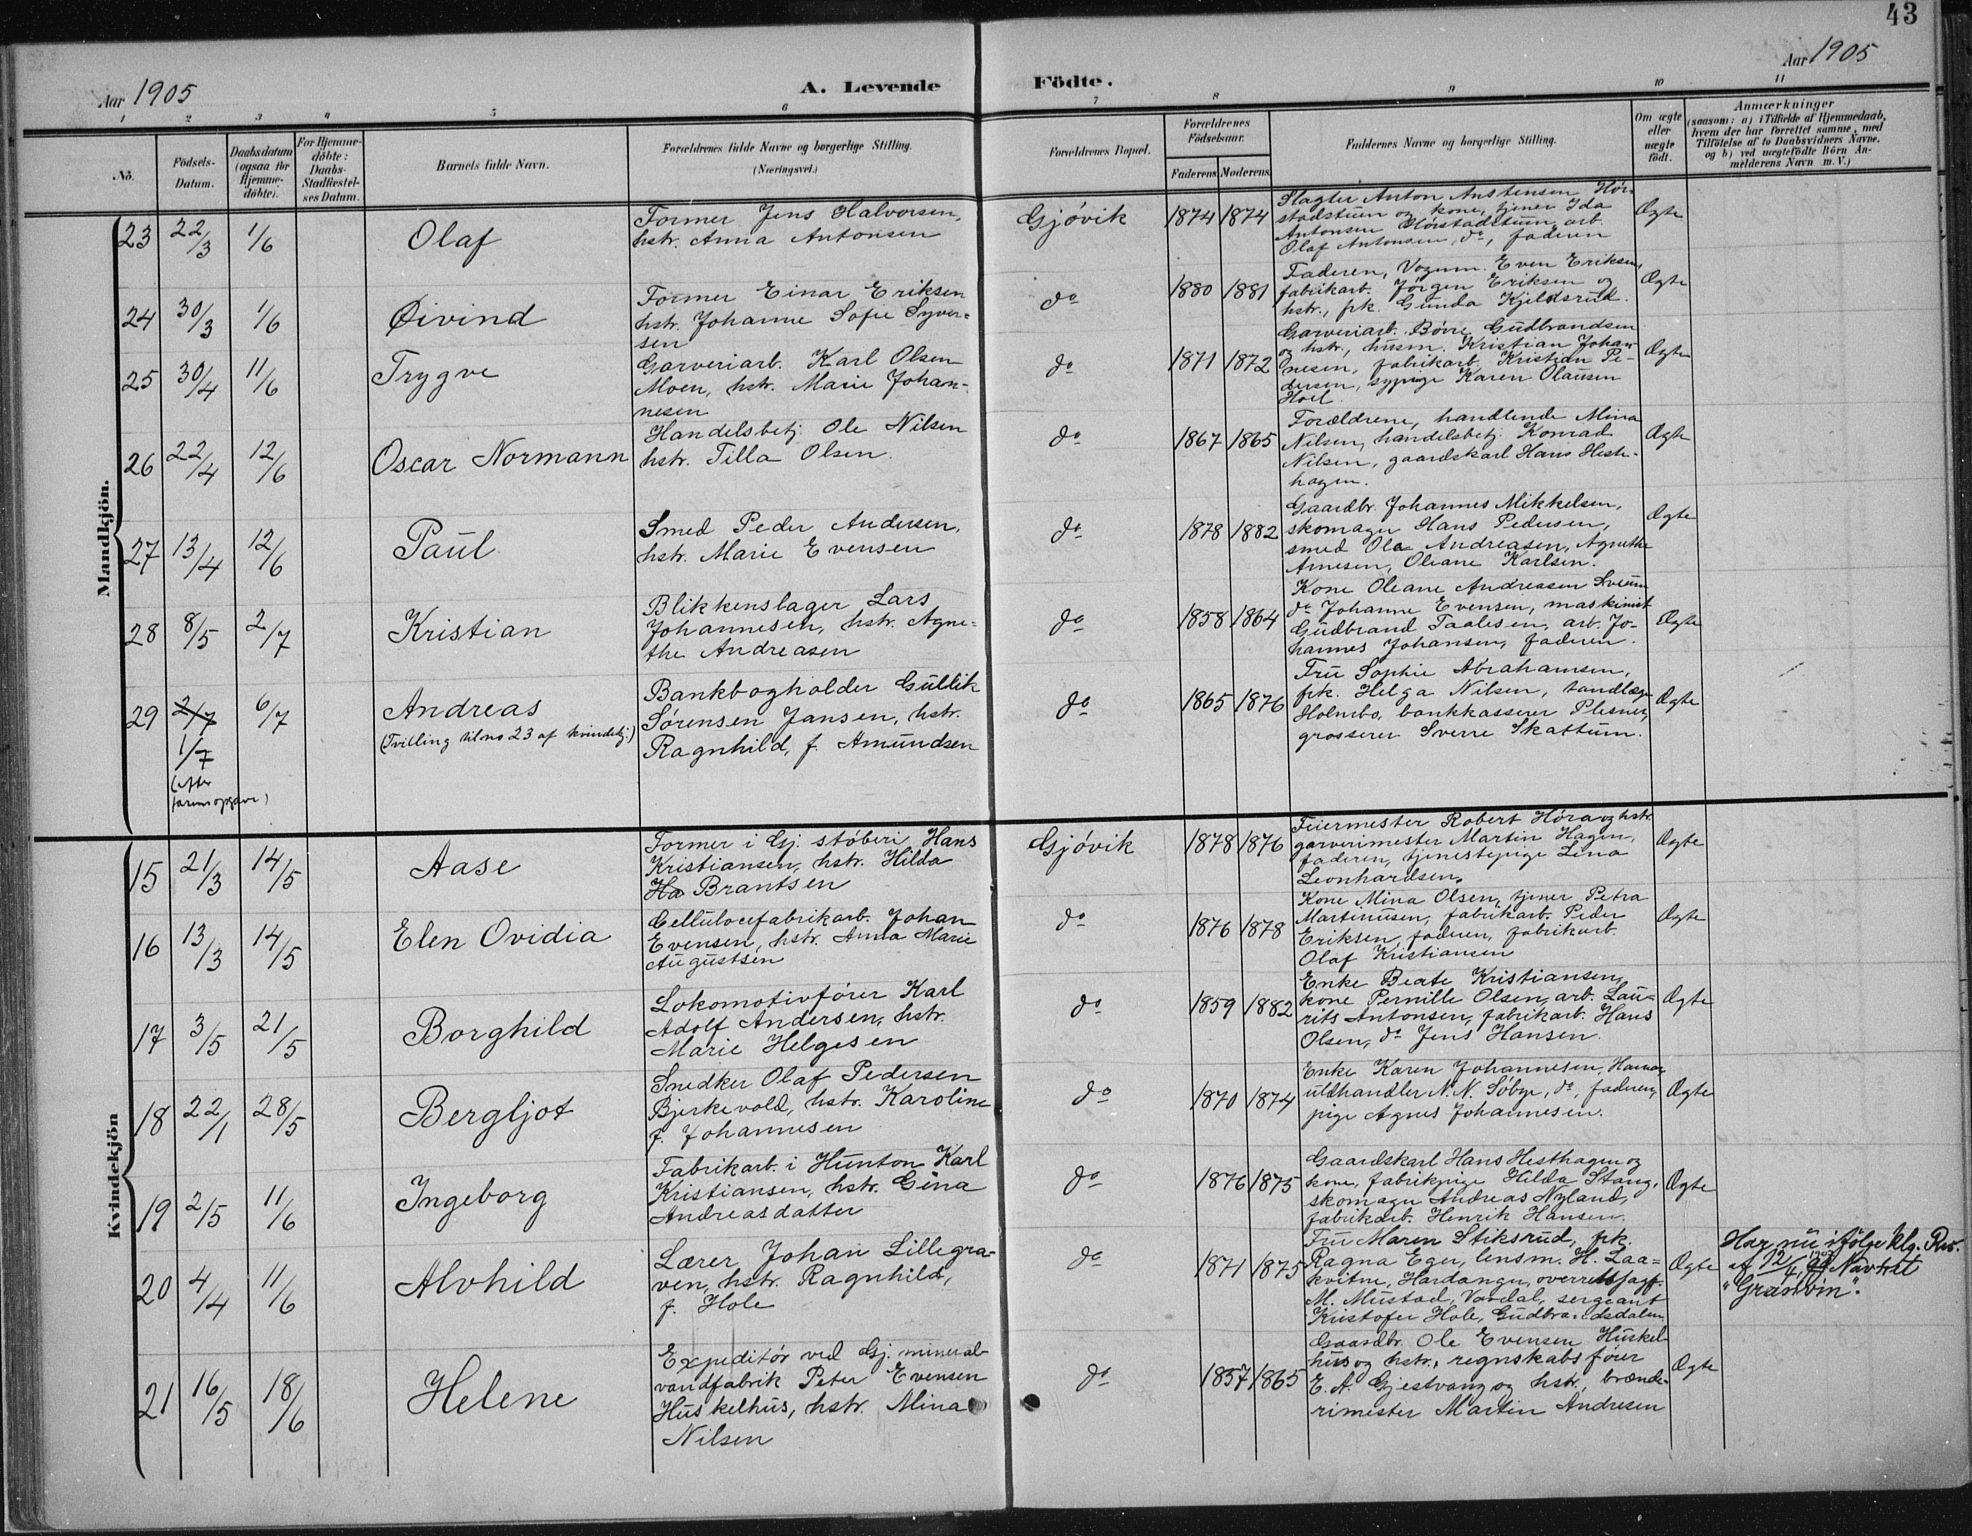 43
Aar 1905
A. Levende Födte.
Aar 1905
1 2 3 4 5 6 7 8 9 10 11
No.
Födsels-
Datum.
Daabsdatum
(ogsaa for
Hjemme-
döbte).
For Hjemme-
döbte:
Daabs-
Stadfæstel-
ses Datum.
Barnets fulde Navn.
Forældrenes fulde Navne og borgerlige Stilling.
(Næringsvei.)
Forældrenes Bopæl.
Forældrenes
Födselsaar.
Faderens. Moderens.
Faddernes Navne og borgerlige Stilling.
Om ægte
eller
uægte
födt.
Anmærkninger
(saasom: a) i Tilfælde af Hjemmedaab,
hvem der har forrettet samme, med
Tilföielse af to Daabsvidners Navne,
og b) ved uægtefödte Börn An-
melderens Navn m. V.)
Mandkjön.
23 22/3 1/6 Olaf
Former Jens Halvorsen,
hstr. Anna Antonsen
Gjøvik 1874 1874
Slagter Anton Anstensen Hør-
stadstuen og kone, tjener Ida
Antonsen Hørstadstuen, arb.
Olaf Antonsen, do, faderen
Ægte
24 30/3 1/6 Øivind
Former Einar Eriksen
hstr. Johanne Sofie Syver-
sen
do 1880 1881
Faderen, Vognm. Even Eriksen,
fabrikarb. Jørgen Eriksen og
hstr., frk. Gunda Kjeldsrud.
Ægte
25 30/4 11/6 Trygve
Garveriarb. Karl Olsen
Moen, hstr. Marie Johan-
nesen
do 1871 1872
Garveriarb. Børre Gudbrandsen
og hstr., husm. Kristian Johan-
nesen, fabrikarb. Kristian Pe-
dersen, sypige Karen Olausen
Hoel.
Ægte
26 22/4 12/6 Oscar Normann
Handelsbetj. Ole Nilsen
hstr. Tilla Olsen.
do 1867 1865
Forældrene, handlende Mina
Nilsen, handelsbetj. Konrad
Nilsen, gaardskarl Hans Hest-
hagen.
Ægte
27 13/4 12/6 Paul
Smed Peder Andersen,
hstr. Marie Evensen
do 1878 1882
Gaardbr. Johannes Mikkelsen,
skomager Hans Pedersen,
smed Ole Andreasen, Agnethe
Arnesen, Oleane Karlsen.
Ægte
28 8/5 2/7 Kristian
Blikkenslager Lars
Johannesen, hstr. Agne-
the Andreasen
do 1858 1864
Kone Oleane Andreasen Sveum
do Johanne Evensen, maskinist
Gudbrand Taalesen, arb. Jo-
hannes Johansen, faderen.
Ægte
29 2/7 6/7 Andreas
1/7
(efter
farens opgave)
(Tvilling til no 23 af kvindekj.)
Bankbogholder Gullik
Sørensen Jansen, hstr.
Ragnhild, f. Amundsen
do 1865 1876
Fru Sophie Abrahamsen,
frk. Helga Nilsen, tandlæge
Holmbo, bankkasserer Plesner,
grosserer Sverre Skattum.
Ægte
Kvindekjön
15 21/3 14/5 Aase
Former i Gj. støberi, Hans
Kristiansen, hstr. Hilda
Ha Brantsen
Gjøvik 1878 1876
Feiermester Robert Høra og hstr.
garverimester Martin Hagen,
faderen, tjenestepige Lina
Leonhardsen.
Ægte
16 13/3 14/5 Elen Ovidia
Cellulosefabrikarb. Johan
Evensen, hstr. Anna Marie
Augustsen
do 1876 1878
Kone Mina Olsen, tjener Petra
Martinusen, fabrikarb. Peder
Eriksen, faderen, fabrikarb.
Olaf Kristiansen
Ægte
17 3/5 21/5 Borghild
Lokomotivfører Karl
Adolf Andersen, hstr.
Marie Helgesen
do 1859 1882
Enke Beate Kristiansen,
kone Pernille Olsen, arb. Lau-
rits Antonsen, fabrikarb. Hans
Olsen, do Jens Hansen.
Ægte
18 22/1 28/5 Bergljot
Snedker Olaf Pedersen
Bjerkevold, hstr. Karoline
f. Johannesen
do 1870 1874
Enke Karen Johannesen, Hamar
uldhandler N. N. Søbye, do, faderen,
pige Agnes Johannesen.
Ægte
19 2/5 11/6 Ingeborg
Fabrikarb. i Hunton Karl
Kristiansen, hstr. Gina
Andreasdatter
do 1876 1875
Gaardskarl Hans Hesthagen og
kone, fabrikpige Hilda Stang,
skomager Andreas Nyland,
fabrikarb. Henrik Hansen.
Ægte
20 4/4 11/6 Alvhild
Lærer Johan Lillegra-
ven, hstr. Ragnhild,
f. Hole
do 1871 1875
Fru Maren Stiksrud, frk.
Ragna Eger, lensm. H. Laa-
kvitne, Hardanger, overretssagf.
M. Mustad, Vardal, sergeant
Kristofer Hole, Gudbrandsdalen
Ægte
Har nu ifølge klg. Res.
af 12/4 Navnet
"Grasvin".
21 16/5 18/6 Helene
Expeditør ved Gj. mineral-
vandfabrik Peter Evensen
Huskelhus, hstr. Mina
Nilsen
do 1857 1865
Gaardbr. Ole Evensen Huskel-
hus og hstr., regnskabsfører
E. A. Gjestvang og hstr., brænde-
rimester Martin Andresen
Ægte